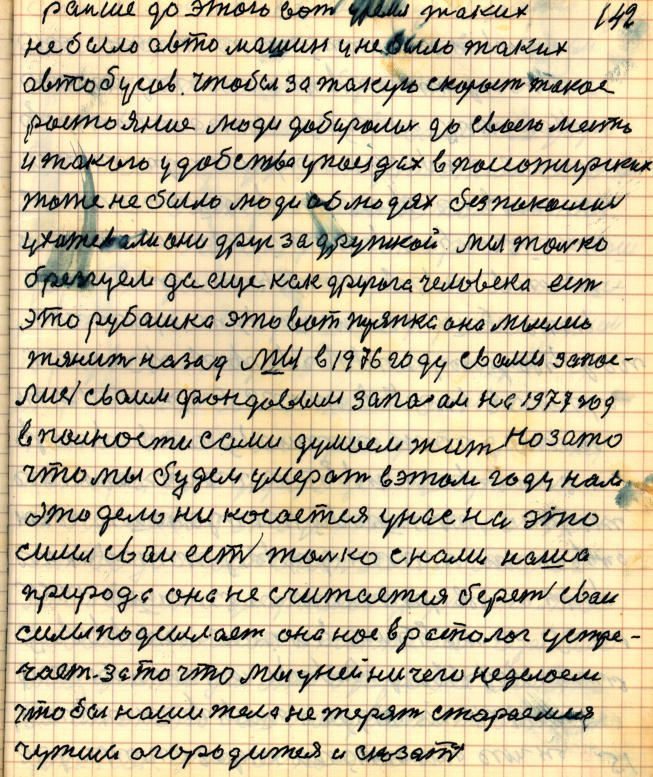 раньше до этого вот время таких 142
не было авто машин и не было таких
автобусов. чтобы за такую скорост такое
ростояние люди добиролис до своего места
и такого удобства у поездах в посожирских
тоже не было люди об людях безпокоилис
ухаживали они друг за дружкой. мы толко
брезгуем да еще как другога человека ест
это рубашка это вот тряпка она мысли
тянит назад МЫ в 1976 году своими запос-
лис своим фондовым запасам на 1977 год
в полности сами думоем жит Но зато
что мы будем умерат в этом году нам
это дело ни косается у нас на это
сили сваи ест толко с нами наша
природа она не считается берет сваи
силы подсиллает она нас в располог устре-
чает. за то что мы у ней ничего неделоем
чтобы наши тела не терят стараемся
чужим огородится и сказат